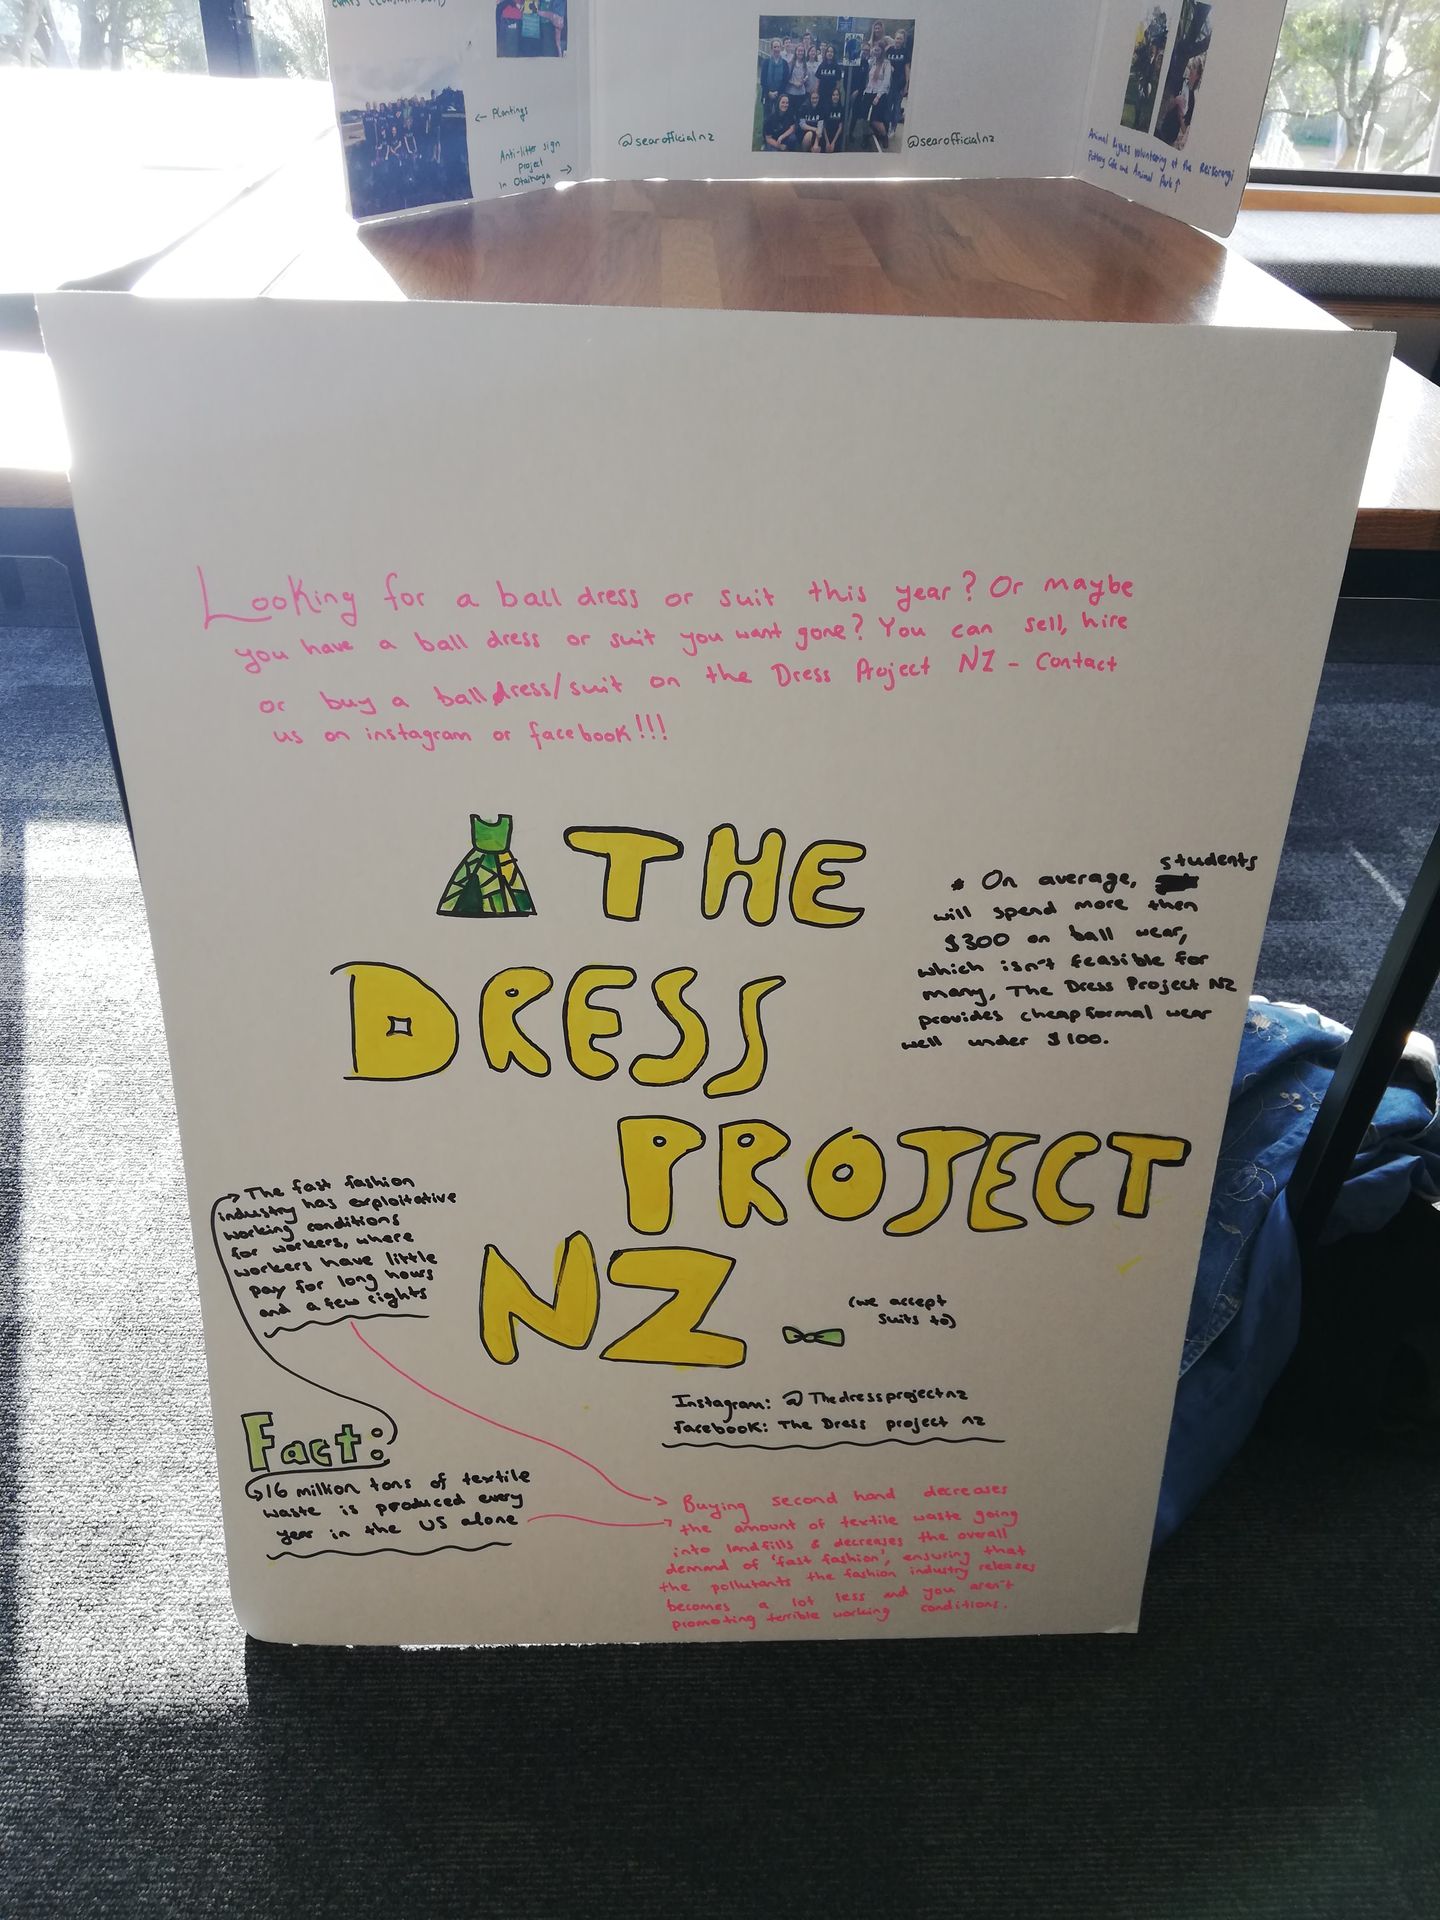 ← Plantings
Anti-litter sign
project
in Otaihanga →
@searofficialnz
S.E.A.R
@searofficialnz
Animal Rights volunteering at the Reikorangi
Pottery Cafe and Animal Park ↑
Looking for a ball dress or suit this year? Or maybe
you have a ball dress or suit you want gone? You can sell, hire
or buy a ball dress/suit on the Dress Project NZ - Contact
us on instagram or facebook!!!
THE
DRESS
PROJECT
NZ
* On average, students
will spend more then
$300 on ball wear,
which isn't feasible for
many, The Dress Project NZ
provides cheap formal wear
well under $100.
→ The fast fashion
industry has exploitative
working conditions
for workers, where
workers have little
pay for long hours
and a few rights
(we accept
suits to)
Instagram: @Thedressprojectnz
facebook: The Dress project nz
Fact:
16 million tons of textile
waste is produced every
year in the US alone
Buying second hand decreases
the amount of textile waste going
into landfills & decreases the overall
demand of 'fast fashion', ensuring that
the pollutants the fashion industry releases
becomes a lot less and you aren't
promoting terrible working conditions.